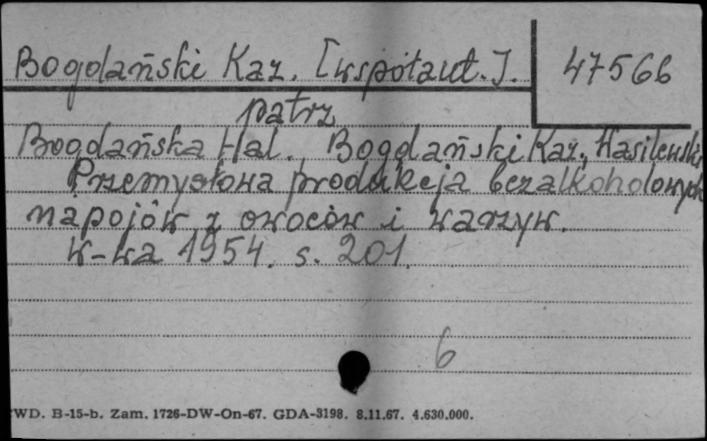 Bogdański Kaz. [współaut.].
47566
patrz
Bogdańska Hal. Bogdański Kaz., Wasilewski
Przemysłowa produkcja bezalkoholowych
napojów z owoców i warzyw.
W-wa 1954. s. 201.
6
WD. B-15-b. Zam. 1726-DW-On-67. GDA-3198. 8.11.67. 4.630.000.